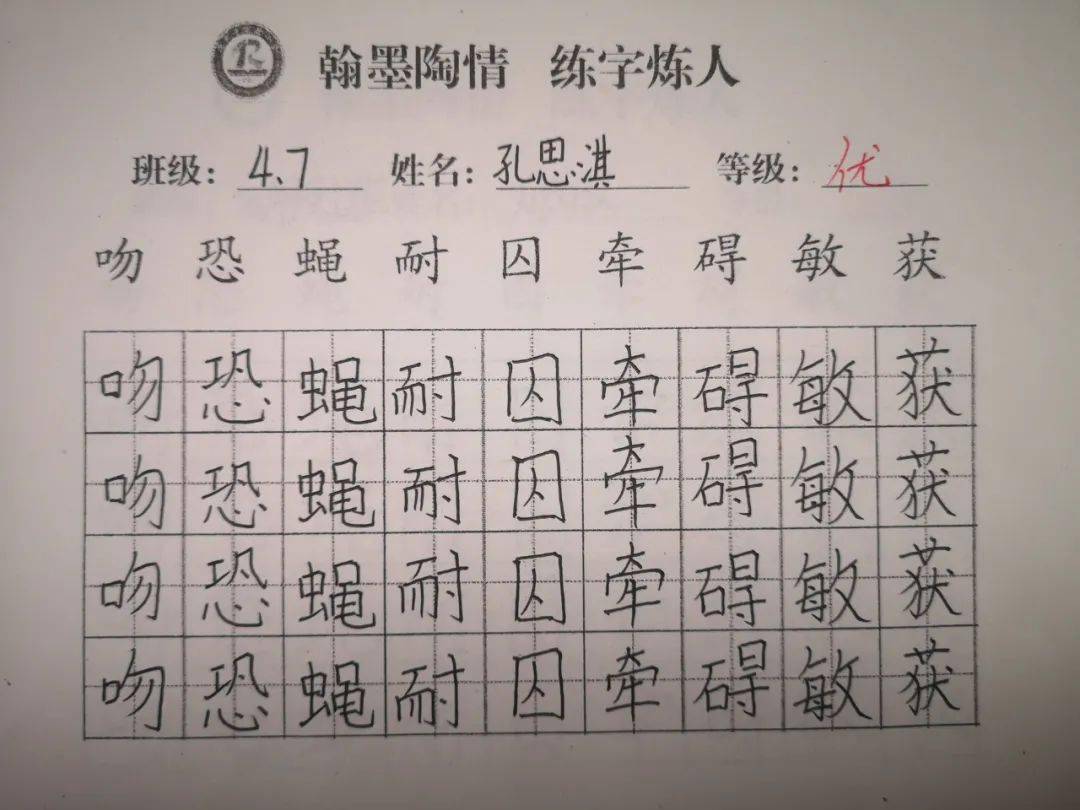 翰墨陶情 练字炼人
班级：4.7 姓名：孔思淇 等级：优
吻 恐 蝇 耐 囚 牵 碍 敏 获
吻 恐 蝇 耐 囚 牵 碍 敏 获
吻 恐 蝇 耐 囚 牵 碍 敏 获
吻 恐 蝇 耐 囚 牵 碍 敏 获
吻 恐 蝇 耐 囚 牵 碍 敏 获